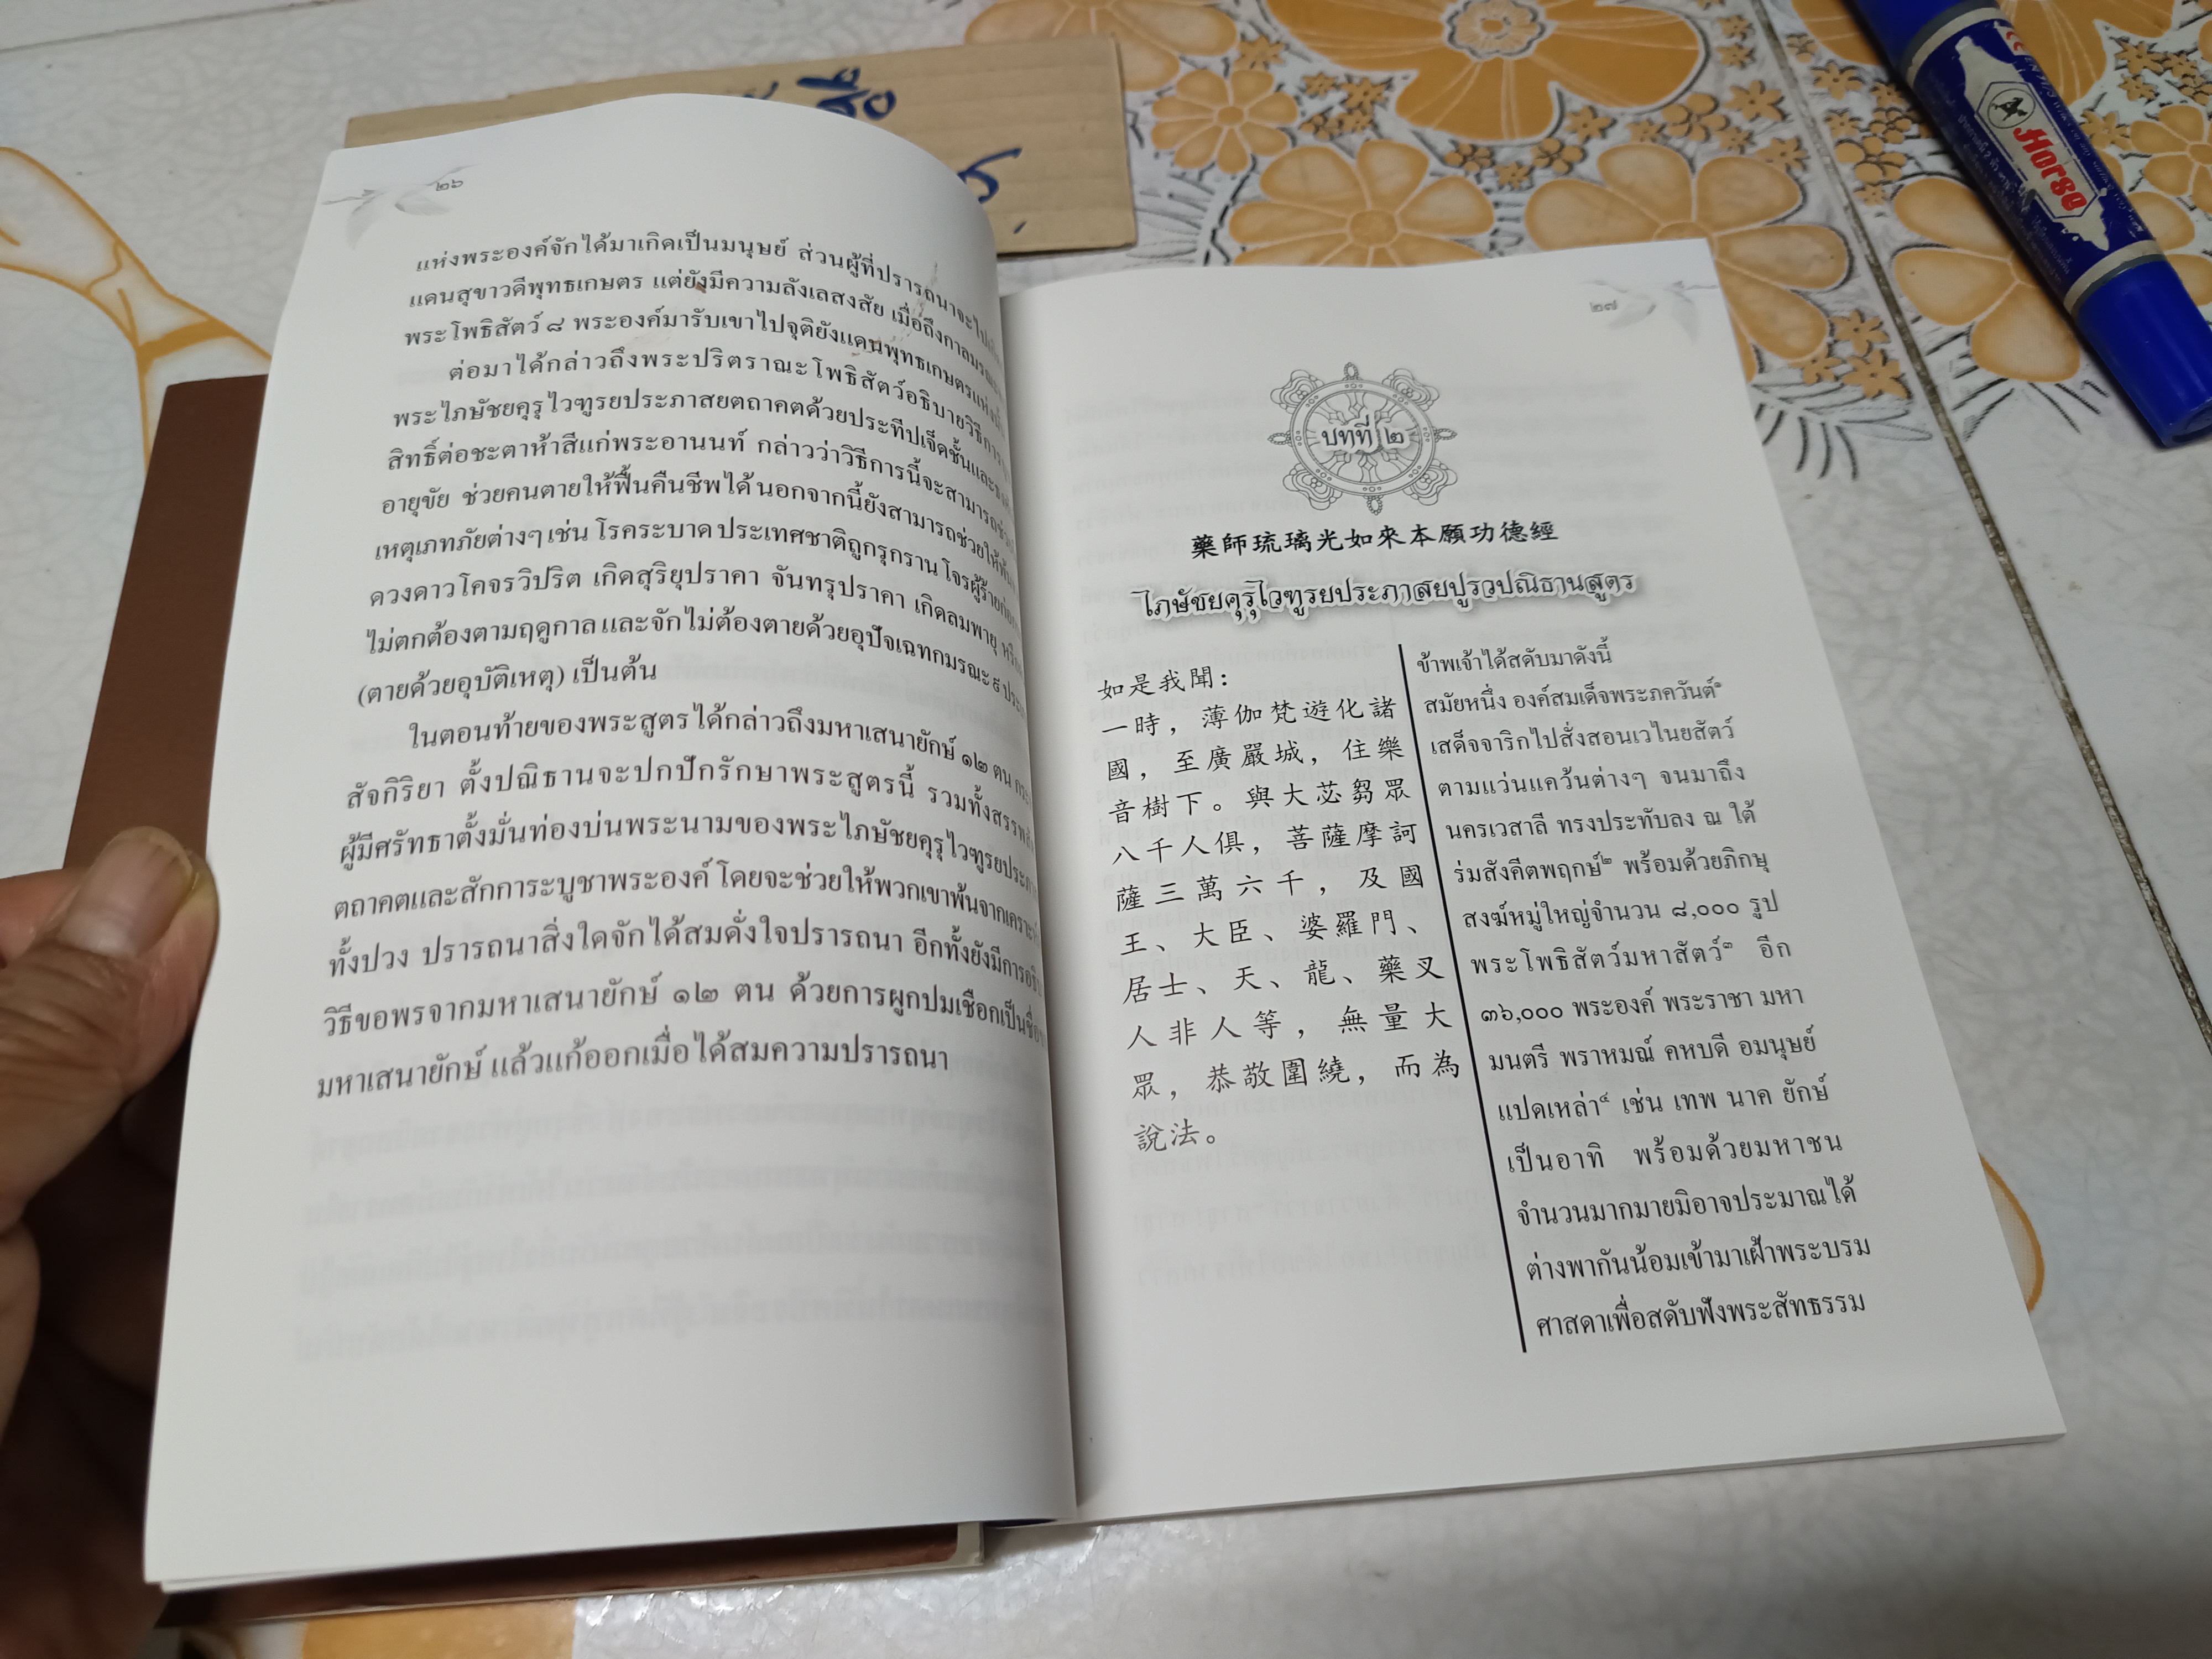 ๒๖
แห่งพระองค์จักได้มาเกิดเป็นมนุษย์ ส่วนผู้ที่ปรารถนาจะไป
แดนสุขาวดีพุทธเกษตร แต่ยังมีความลังเลสงสัย เมื่อถึงกาลมรณะ
พระโพธิสัตว์ ๘ พระองค์มารับเขาไปจุติยังแดนพุทธเกษตรแห่ง
ต่อมาได้กล่าวถึงพระปริตราณะโพธิสัตว์อธิบายวิธีการ
พระไภษัชยคุรุไวฑูรยประภาสยตถาคตด้วยประทีปเจ็ดชั้นและ
สิทธิ์ต่อชะตาห้าสีแก่พระอานนท์ กล่าวว่าวิธีการนี้จะสามารถช่วย
อายุขัย ช่วยคนตายให้ฟื้นคืนชีพได้ นอกจากนี้ยังสามารถช่วยให้พ้น
เหตุเภทภัยต่างๆ เช่น โรคระบาด ประเทศชาติถูกรุกราน โจรผู้ร้าย
ดวงดาวโคจรวิปริต เกิดสุริยุปราคา จันทรุปราคา เกิดลมพายุ
ไม่ตกต้องตามฤดูกาล และจักไม่ต้องตายด้วยอุปัจเฉทกมรณะ ๙
(ตายด้วยอุบัติเหตุ) เป็นต้น
ในตอนท้ายของพระสูตรได้กล่าวถึงมหาเสนายักษ์ ๑๒ ตน
สัจกิริยา ตั้งปณิธานจะปกปักรักษาพระสูตรนี้ รวมทั้งสรรพสัตว์
ผู้มีศรัทธาตั้งมั่นท่องบ่นพระนามของพระไภษัชยคุรุไวฑูรยประภาส
ตถาคตและสักการะบูชาพระองค์ โดยจะช่วยให้พวกเขาพ้นจากเคราะห์
ทั้งปวง ปรารถนาสิ่งใดจักได้สมดั่งใจปรารถนา อีกทั้งยังมีการ
วิธีขอพรจากมหาเสนายักษ์ ๑๒ ตน ด้วยการผูกปมเชือกเป็นชื่อ
มหาเสนายักษ์ แล้วแก้ออกเมื่อได้สมความปรารถนา
๒๗
บทที่ ๒
藥師琉璃光如來本願功德經
ไภษัชยคุรุไวฑูรยประภาสยปูรวปณิธานสูตร
如是我聞：
一時，薄伽梵遊化諸
國，至廣嚴城，住樂
音樹下。與大苾芻眾
八千人俱，菩薩摩訶
薩三萬六千，及國
王、大臣、婆羅門、
居士、天、龍、藥叉
人非人等，無量大
眾，恭敬圍繞，而為
說法。
ข้าพเจ้าได้สดับมาดังนี้
สมัยหนึ่ง องค์สมเด็จพระภควันต์๑
เสด็จจาริกไปสั่งสอนเวไนยสัตว์
ตามแว่นแคว้นต่างๆ จนมาถึง
นครเวสาลี ทรงประทับลง ณ ใต้
ร่มสังคีตพฤกษ์๒ พร้อมด้วยภิกษุ
สงฆ์หมู่ใหญ่จำนวน ๘,๐๐๐ รูป
พระโพธิสัตว์มหาสัตว์๓ อีก
๓๖,๐๐๐ พระองค์ พระราชา มหา
มนตรี พราหมณ์ คหบดี อมนุษย์
แปดเหล่า๔ เช่น เทพ นาค ยักษ์
เป็นอาทิ พร้อมด้วยมหาชน
จำนวนมากมายมิอาจประมาณได้
ต่างพากันน้อมเข้ามาเฝ้าพระบรม
ศาสดาเพื่อสดับฟังพระสัทธรรม
Horse